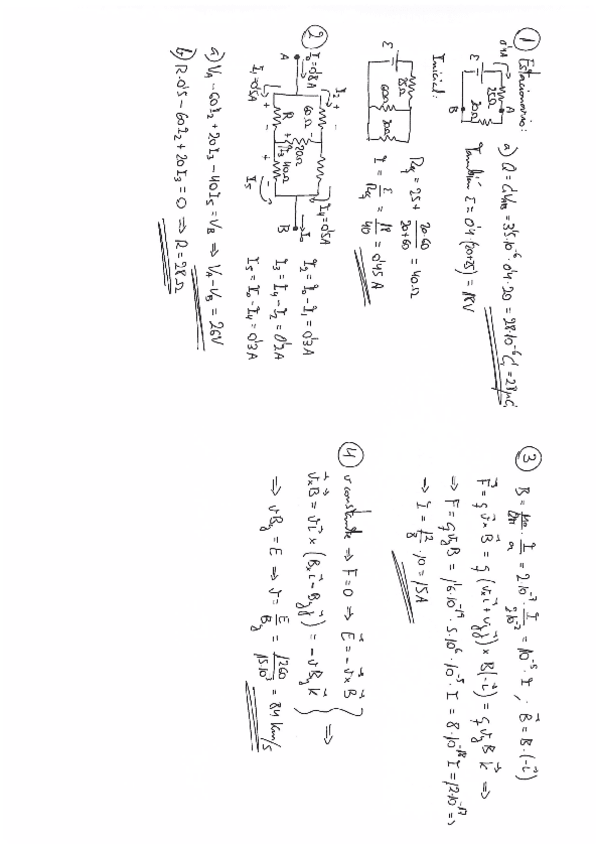 ① Estacionario:
0'4A
A
E
25Ω
20Ω
B
a) Q = CV_AB = 3'5·10⁻⁶·0'4·20 = 28·10⁻⁶ C = 28 μC
También E = 0'4·(20+25) = 18V
Inicial:
E
25Ω
60Ω
20Ω
Req = 25 + 20·60/(20+60) = 40Ω
I = E/Req = 18/40 = 0'45A
②
I₀=0'8A
A
I₂
60Ω
I₄=0'5A
20Ω
I₃
R
40Ω
I₁=0'5A
I₅
B
I₀
I₂ = I₀ - I₁ = 0'3A
I₃ = I₄ - I₂ = 0'2A
I₅ = I₀ - I₄ = 0'3A
a) V_A - 60I₂ + 20I₃ - 40I₅ = V_B ⇒ V_A - V_B = 26V
b) R·0'5 - 60I₂ + 20I₃ = 0 ⇒ R = 28Ω
③ B = μ₀/2π · I/a = 2·10⁻⁷ · I/2·10⁻² = 10⁻⁵·I ; B⃗ = B·(-i⃗)
F⃗ = q v⃗ x B⃗ = q (vₓi⃗ + v_y j⃗) x B(-i⃗) = q v_y B k⃗ ⇒
⇒ F = q v_y B = 1'6·10⁻¹⁹ · 5·10⁶ · 10⁻⁵ · I = 8·10⁻¹⁸ I = 12·10⁻¹⁷ ⇒
⇒ I = 12/8 · 10 = 15A
④ v constante ⇒ F = 0 ⇒ E⃗ = -v⃗ x B⃗
v⃗ x B⃗ = v i⃗ x (Bₓ i⃗ - B_y j⃗) = -v B_y k⃗ } ⇒
⇒ v B_y = E ⇒ v = E/B_y = 1260/15·10⁻³ = 84 km/s